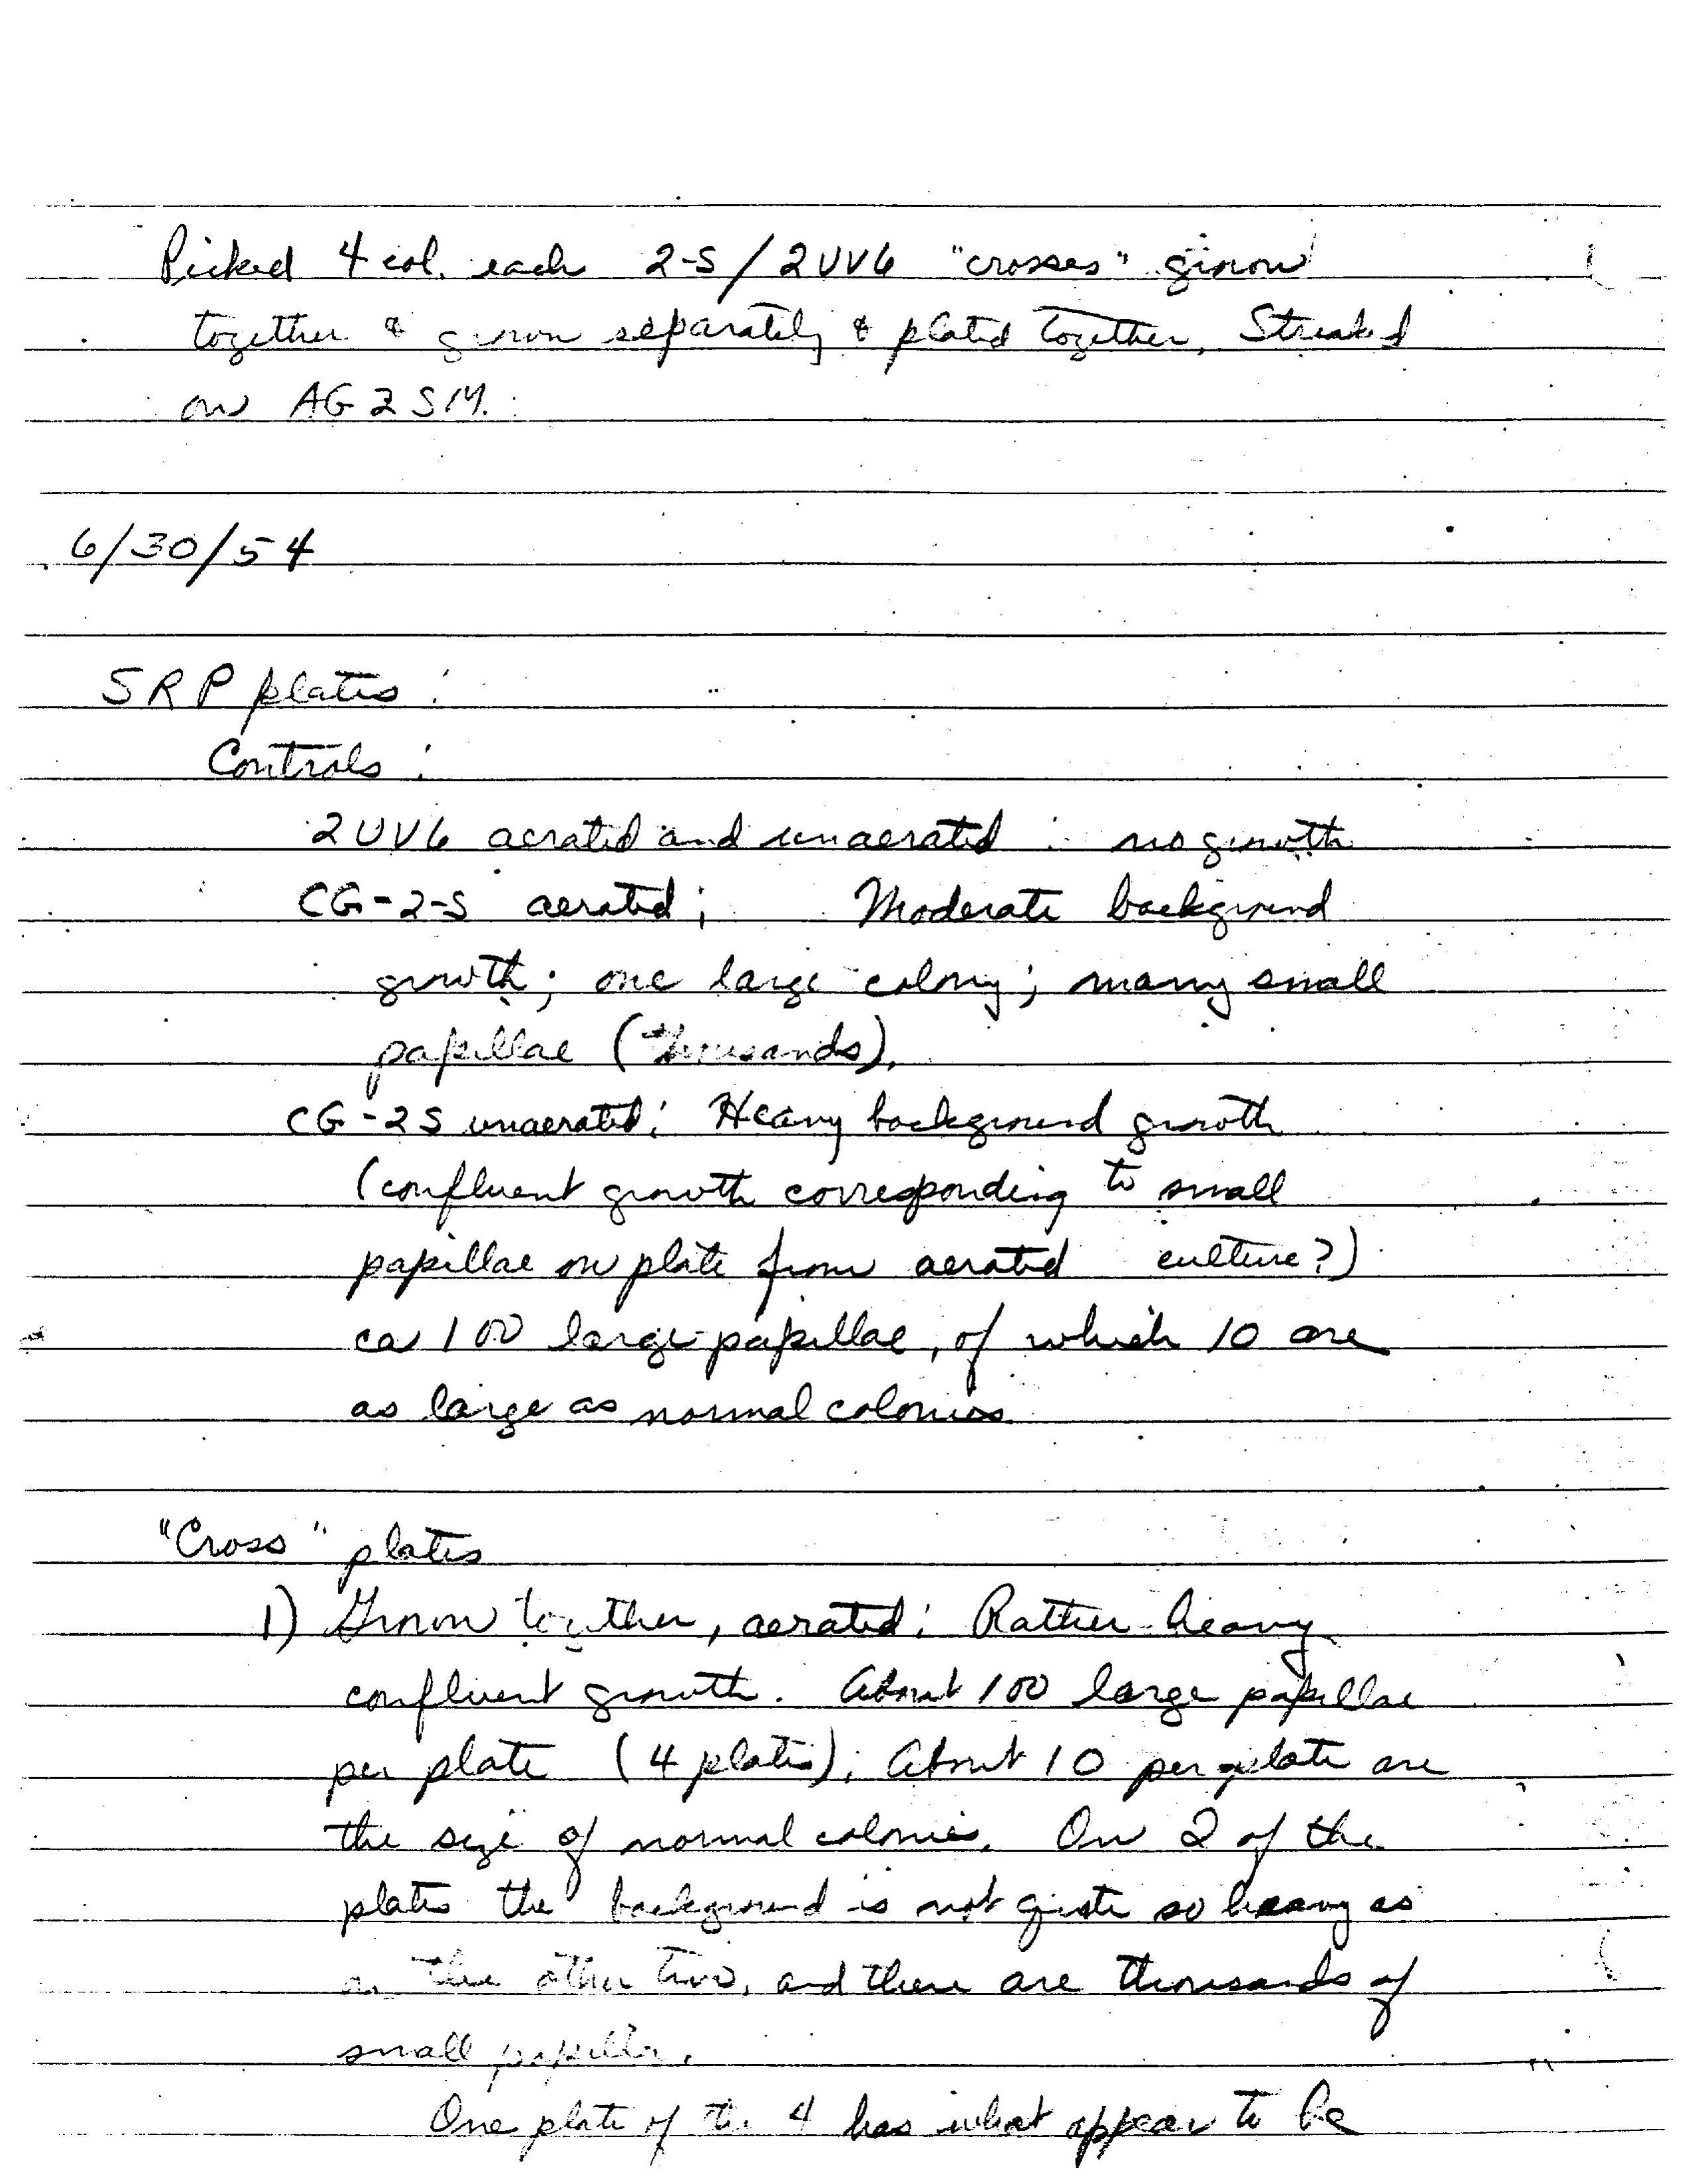 Picked 4 col. each 2-S / 2UV6 "crosses" grown
together & grown separately & plated together. Streaked
on AG2SM.
6/30/54
SRP plates:
Controls:
2UV6 aerated and unaerated : no growth
CG-2-S aerated; Moderate background
growth; one large colony; many small
papillae (thousands).
CG-2S unaerated: Heavy background growth
(confluent growth corresponding to small
papillae on plate from aerated culture?)
ca 100 large papillae, of which 10 are
as large as normal colonies.
"Cross" plates
1) Grown together, aerated: Rather heavy
confluent growth. About 100 large papillae
per plate (4 plates); About 10 per plate are
the size of normal colonies. On 2 of the
plates the background is not quite so heavy as
on the other two, and there are thousands of
small papillae.
One plate of the 4 has what appear to be